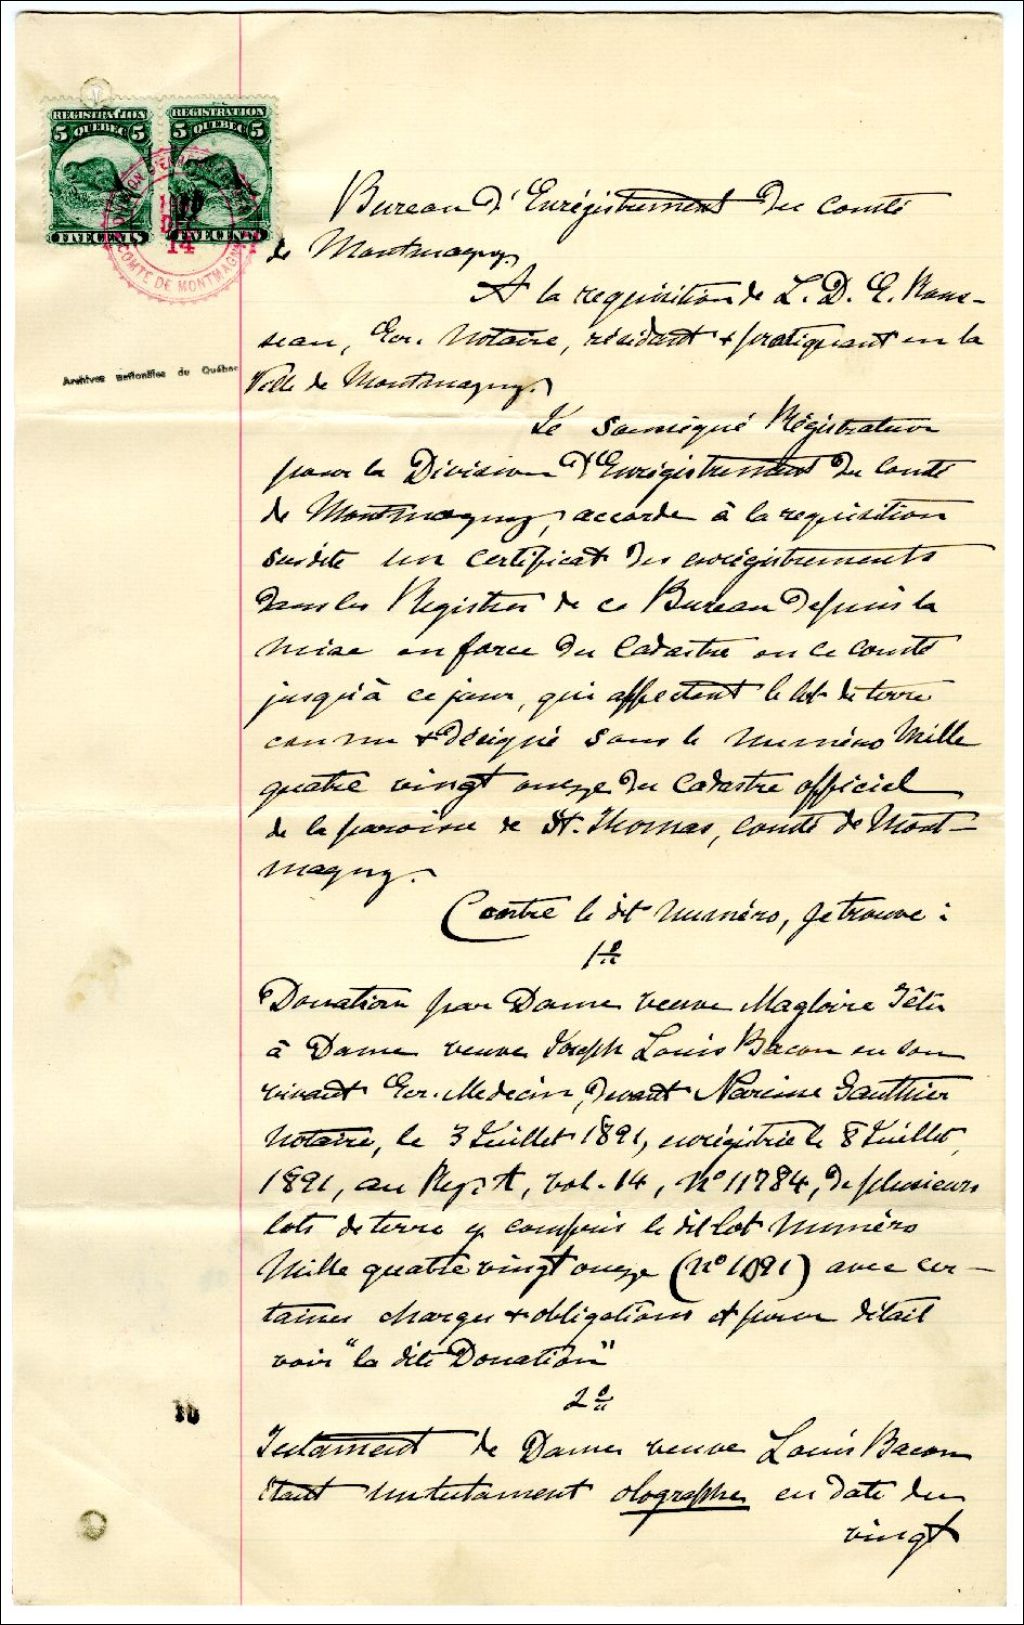 REGISTRATION REGISTRATION
5 QUEBEC 5 5 QUEBEC 5
FIVE CENTS FIVE CENTS
14
COMTE DE MONTMAGNY
Archives nationales du Québec
Bureau d'Enrégistrement du comté
de Montmagny.
A la requisition de L. D. E. Rous-
seau, Ecr. Notaire, résidant & pratiquant en la
Ville de Montmagny.
Le soussigné Régistrateur
pour la Division d'Enrégistrement du comté
de Montmagny, accorde à la requisition
susdite un certificat des enrégistrements
dans les Registres de ce Bureau depuis la
mise en force du Cadastre en ce comté
jusqu'à ce jour, qui affectent le lot de terre
connu & désigné sous le numéro Mille
quatre vingt onze du Cadastre officiel
de la paroisse de St. Thomas, comté de Mont-
magny.
Contre le dit numéro, je trouve :
1o
Donation par Dame veuve Magloire Têtu
à Dame veuve Joseph Louis Bacon en son
vivant Ecr. Medecin, devant Narcisse Gauthier
Notaire, le 3 Juillet 1891, enrégistrée le 8 Juillet,
1891, au Reg: A, vol. 14, No 11784, de plusieurs
lots de terre y compris le dit lot Numéro
Mille quatre vingt onze (No 1091) avec cer-
taines charges & obligations et pour détail
voir "la dite Donation"
2o
Testament de Dame veuve Louis Bacon
étant un testament olographe en date du
vingt
10